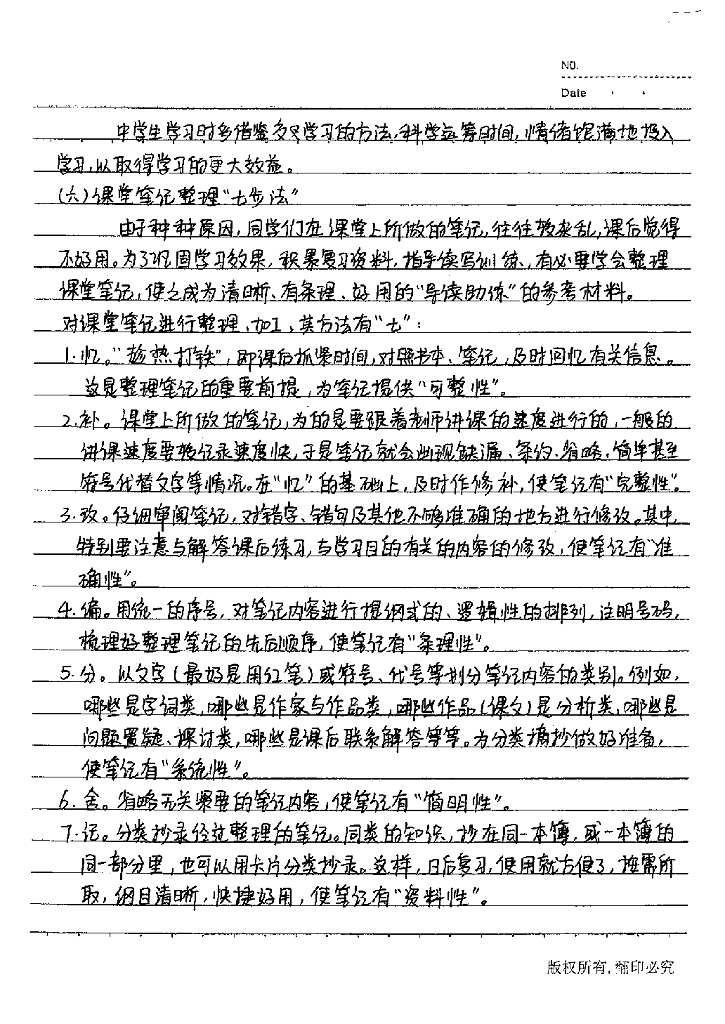 NO.
Date
中学生学习时多借鉴多种学习的方法,科学运筹时间,情绪饱满地投入
学习,以取得学习的更大效益。
(六)课堂笔记整理“七步法”
由于种种原因,同学们在课堂上所做的笔记,往往较杂乱,课后觉得
不好用。为了巩固学习效果,积累复习资料,指导读写训练,有必要学会整理
课堂笔记,使之成为清晰、有条理、好用的“导读助练”的参考材料。
对课堂笔记进行整理、加工,其方法有“七”:
1.忆。“趁热打铁”,即课后抓紧时间,对照书本、笔记,及时回忆有关信息。
这是整理笔记的重要前提,为笔记提供“可整性”。
2.补。课堂上所做的笔记,为的是要跟着老师讲课的速度进行的,一般的
讲课速度要较记录速度快,于是笔记就会出现缺漏、条约、省略、简单甚至
符号代替文字等情况。在“忆”的基础上,及时作修补,使笔记有“完整性”。
3.改。仔细审阅笔记,对错字、错句及其他不够准确的地方进行修改。其中,
特别要注意与解答课后练习,与学习目的有关的内容的修改,使笔记有“准
确性”。
4.编。用统一的序号,对笔记内容进行提纲式的、逻辑性的排列,注明号码,
梳理好整理笔记的先后顺序,使笔记有“条理性”。
5.分。以文字(最好是用红笔)或符号、代号等划分笔记内容的类别。例如,
哪些是字词类,哪些是作家与作品类,哪些作品(课文)是分析类,哪些是
问题置疑、探讨类,哪些是课后联系解答等等。为分类摘抄做好准备,
使笔记有“系统性”。
6.舍。省略无关紧要的笔记内容,使笔记有“简明性”。
7.记。分类抄录经过整理的笔记。同类的知识,抄在同一本簿,或一本簿的
同一部分里,也可以用卡片分类抄录。这样,日后复习,使用就方便了,按需所
取,纲目清晰,快捷好用,使笔记有“资料性”。
版权所有,翻印必究